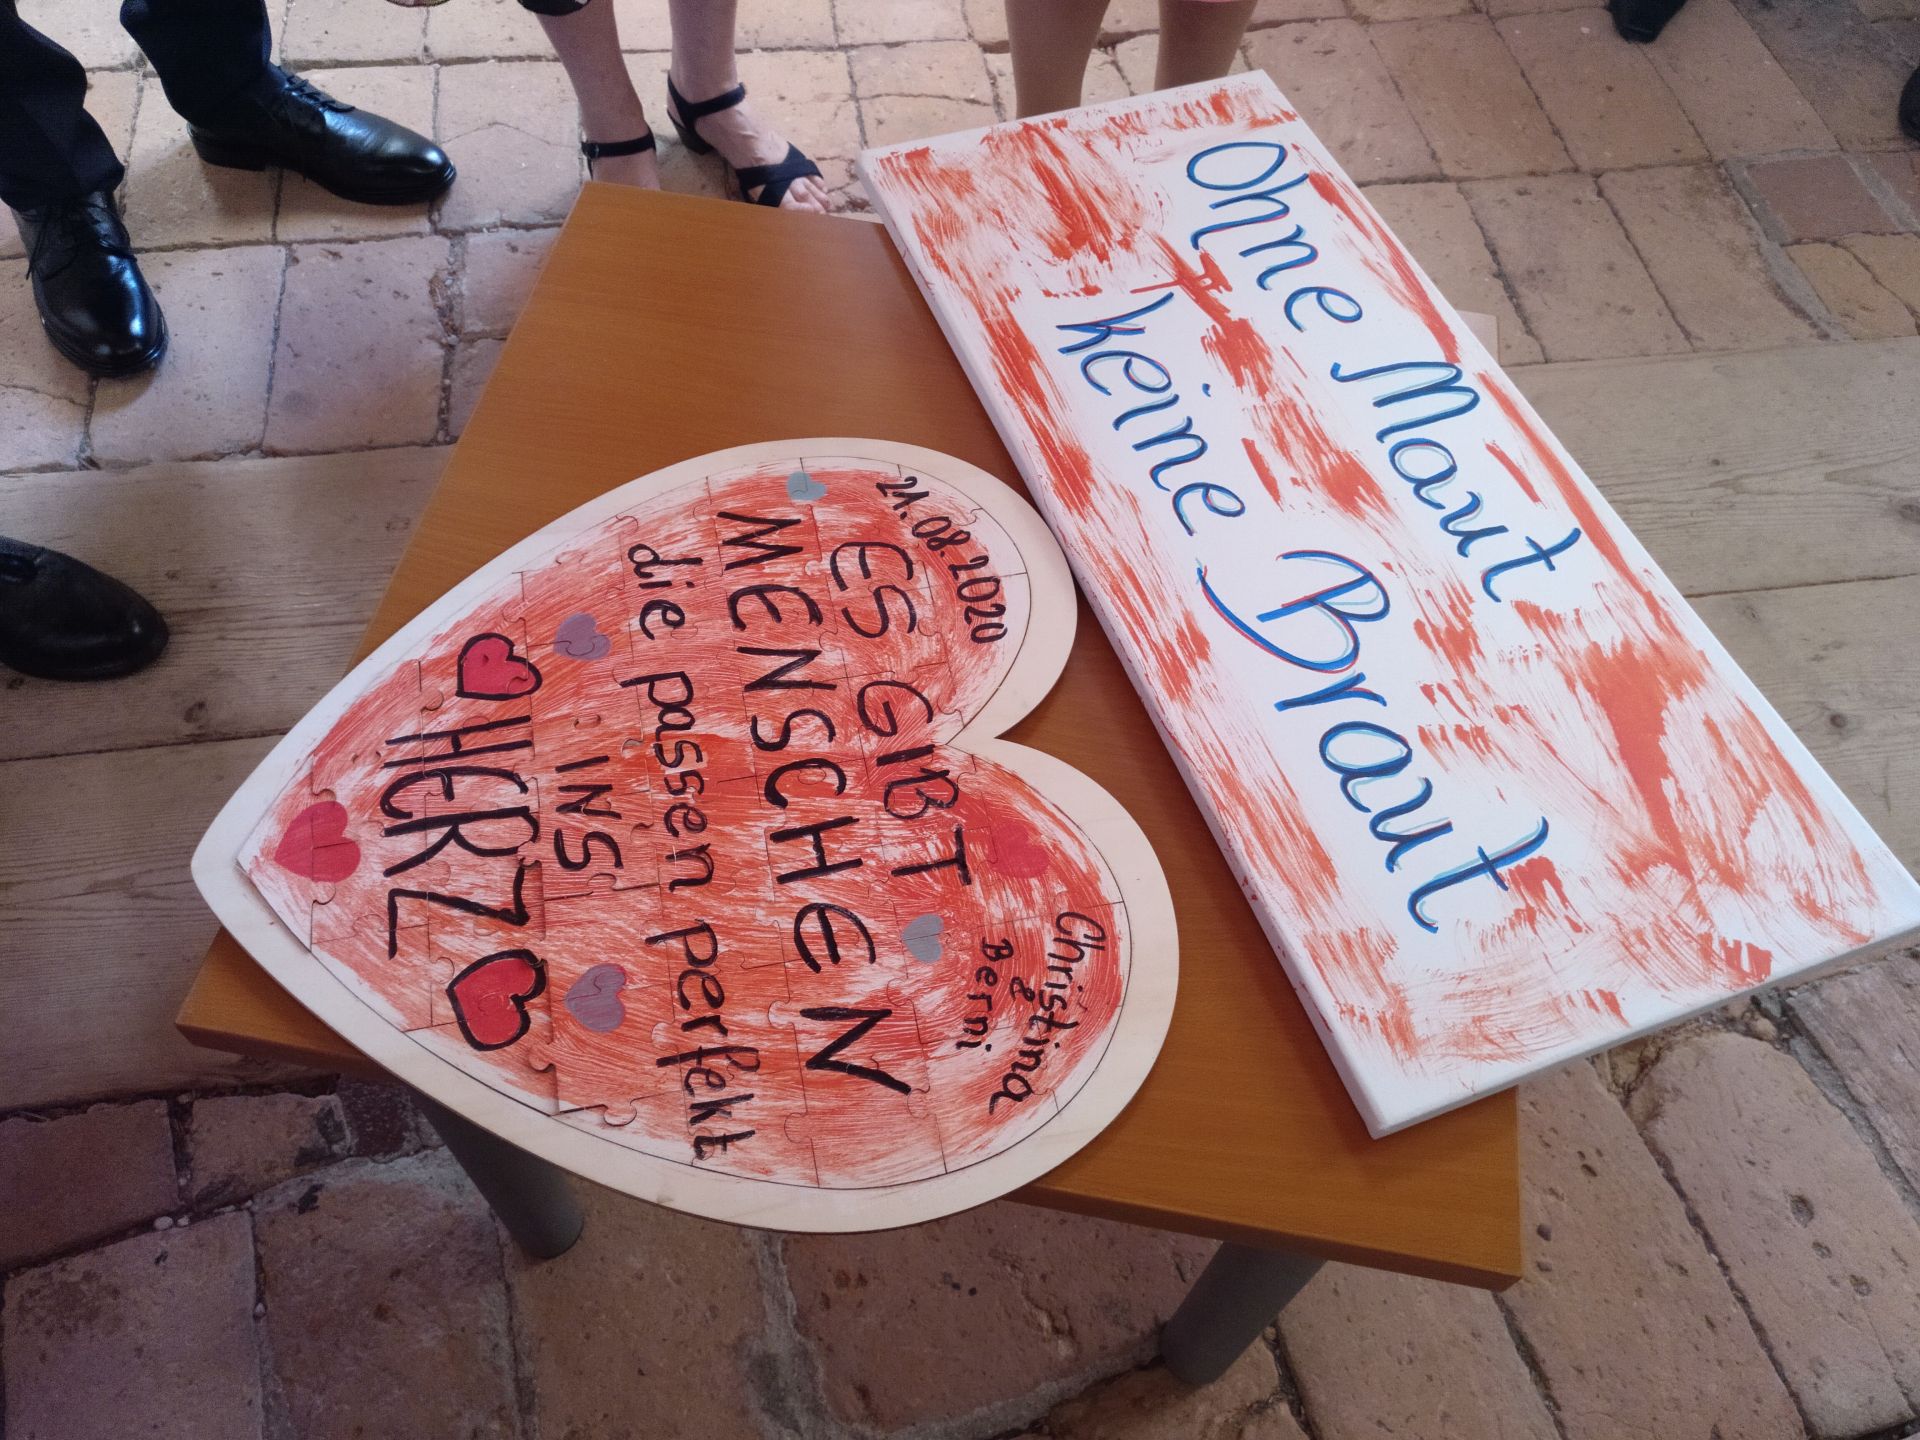 Ohne Maut
keine Braut
21.08.2020
Christina
&
Berni
ES GIBT
MENSCHEN
die passen perfekt
INS
HERZ